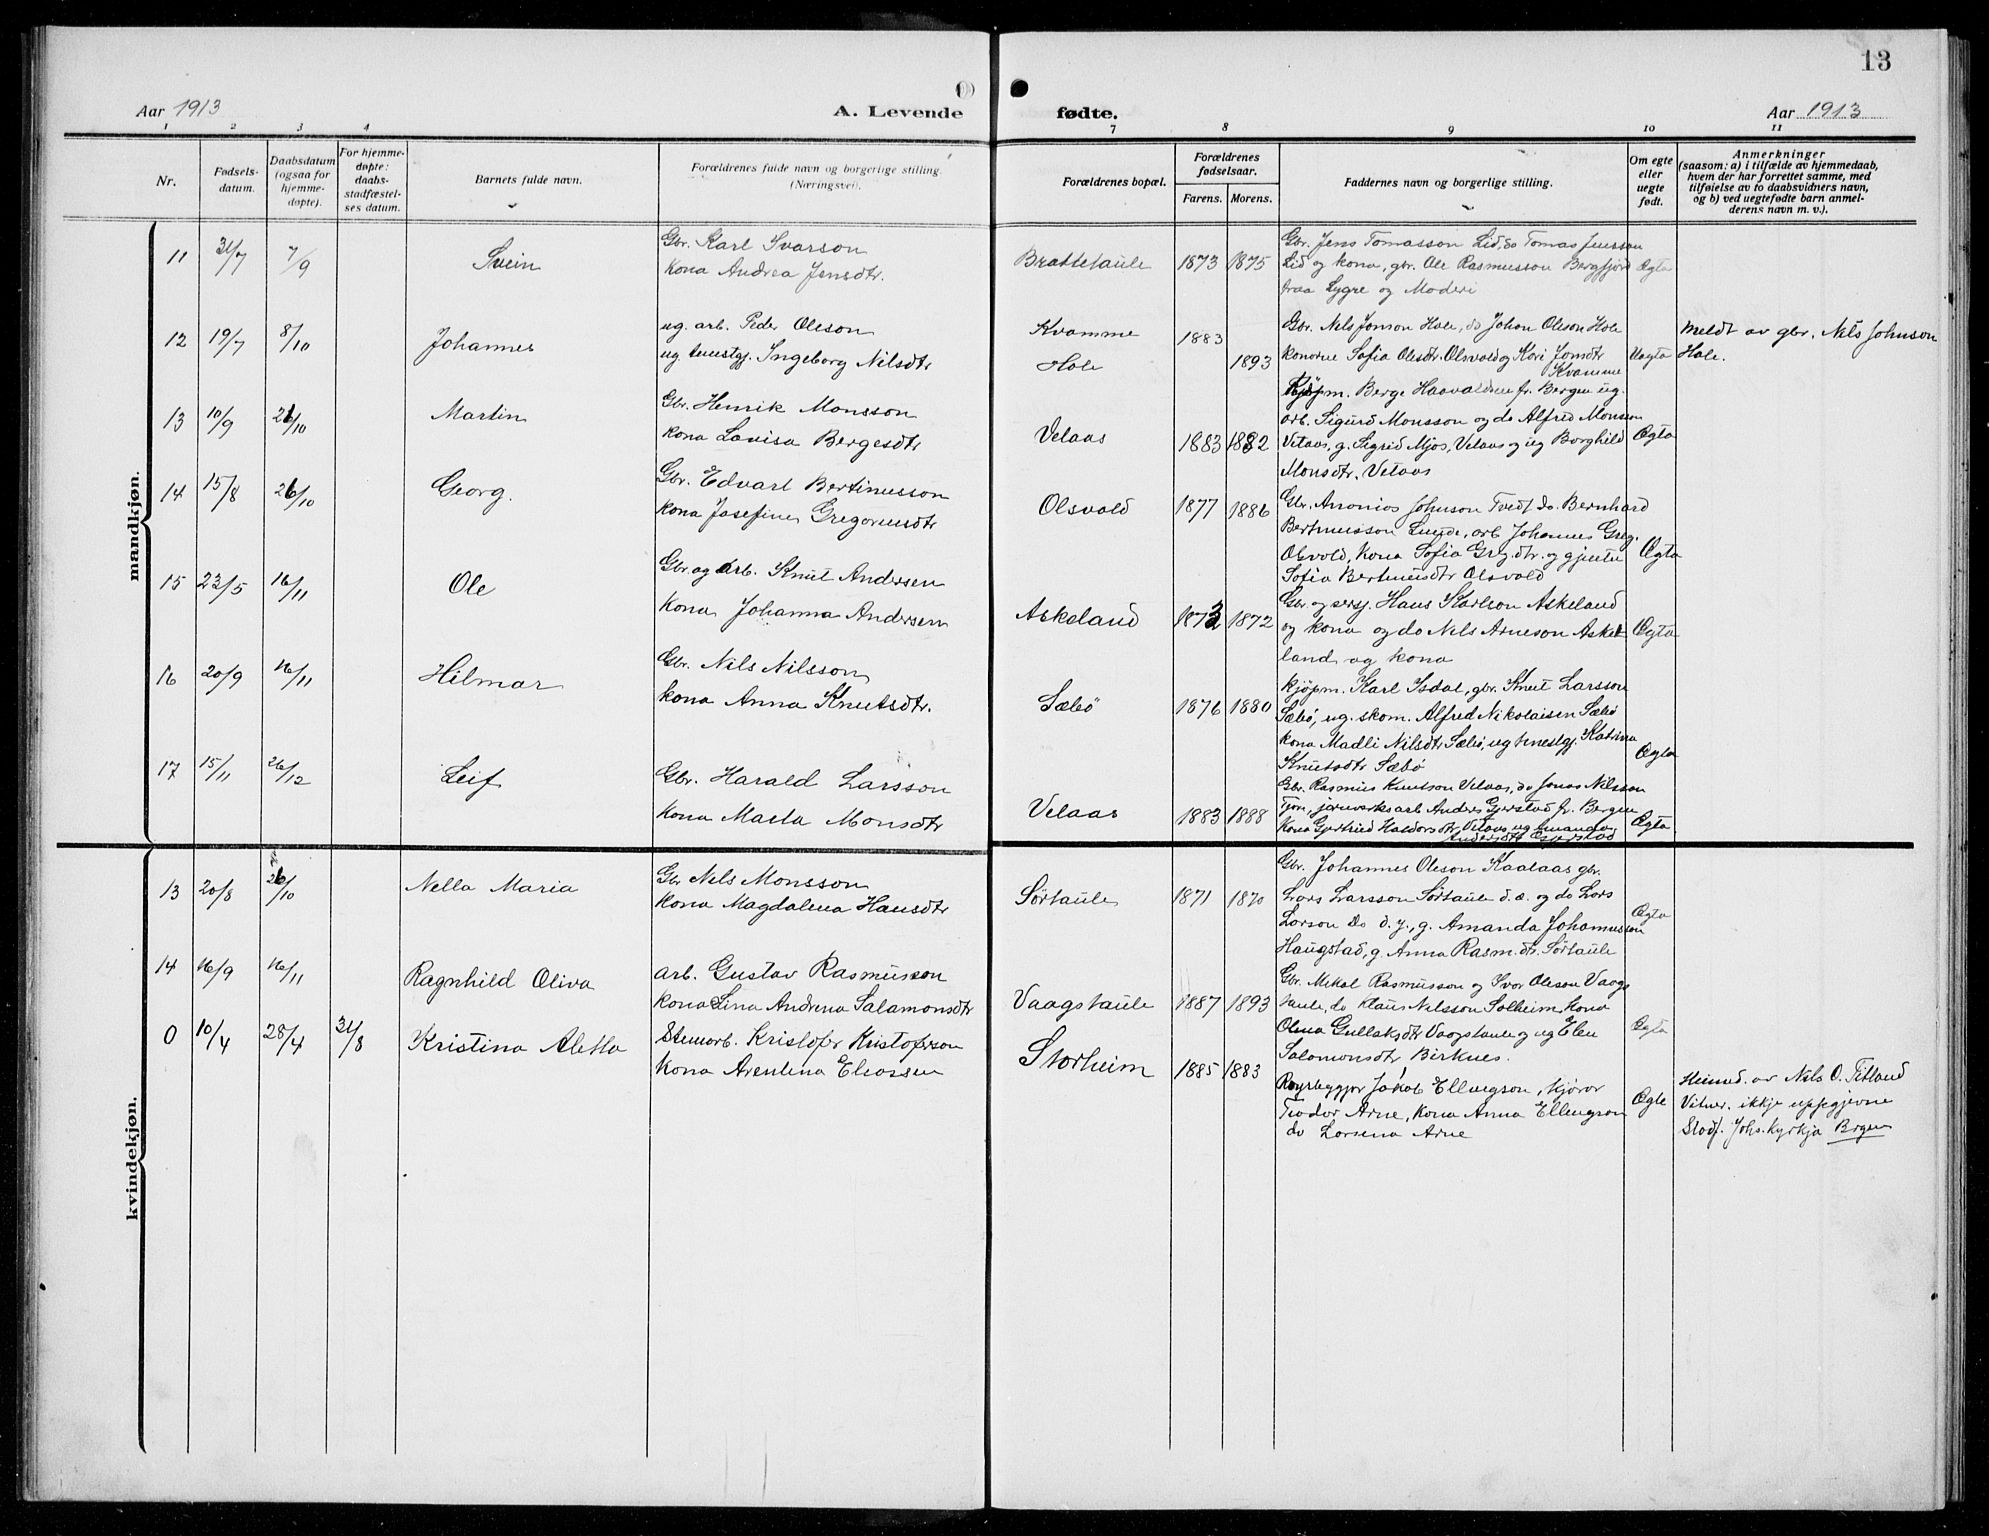 13
Aar 1913
A. Levende
fødte.
Aar 1913
1 2 3 4
7 8 9 10 11
Nr.
Fødsels-
datum.
Daabsdatum
(ogsaa for
hjemme-
døpte).
For hjemme-
døpte:
daabs-
stadfæstel-
ses datum.
Barnets fulde navn.
Forældrenes fulde navn og borgerlige stilling.
(Næringsvei).
Forældrenes bopæl.
Forældrenes
fødselsaar.
Farens. Morens.
Faddernes navn og borgerlige stilling.
Om egte
eller
uegte
født.
Anmerkninger
(saasom: a) i tilfælde av hjemmedaab,
hvem der har forrettet samme, med
tilføielse av to daabsvidners navn,
og b) ved uegtefødte barn anmel-
derens navn m. v.).
mandkjøn.
11 31/7 7/9 Svein
Gbr. Karl Ivarson
kona Andrea Jensdtr.
Brattetaule 1873 1875
Gbr. Jens Tomasson Lid, do Tomas Jensson
Lid og kona, gbr. Ole Rasmusson Bergfjord
fraa Lygre og Moderi
Ægta
12 19/7 8/10 Johannes
ug. arb. Peder Oleson
ug. tenestgj. Ingeborg Nilsdtr
Kvamme 1883
Hole 1893
Gbr. Nils Jonson Hole, do Johan Oleson Hole
konorne Sofia Olesdtr. Olsvold og Kari Jonsdtr
Kvamme
Uægta
Meldt av gbr. Nils Johnson
Hole.
13 10/9 26/10 Martin
Gbr. Henrik Monsson
kona Lovisa Bergesdtr
Velaas 1883 1882
Kjøpm. Berge Haavaldsen fr. Bergen ug.
arb. Sigurd Monsson og do Alfred Monsson
Vetaas, g. Sigrid Mjos, Velaas og ug Borghild
Monsdtr. Vetaas
Ægta
14 15/8 26/10 Georg.
Gbr. Edvart Bertinusson
kona Josefine Gregoriusdtr
Olsvold 1877 1886
Gbr. Antonius Johnson Tvedt do. Bernhard
Bertinusson Lunde, arb Johannes Greg.
Olsvold, kona Sofia Greg.dtr. og gjenta
Sofia Bertinusdtr Olsvold
Ægta
15 23/5 16/11 Ole
Gbr og arb. Knut Andersen
kona Johanna Andersen
Askeland 1873 1872
Gbr og sersj. Hans Karlson Askeland
og kona og do Nils Arneson Aske
land og kona
Ægta
16 20/9 16/11 Hilmar
Gbr. Nils Nilsson
kona Anna Knutsdtr.
Sæbø 1876 1880
kjøpm. Karl Isdal, gbr. Knut Larsson
Sæbø, ug. skom. Alfred Nikolaisen Sæbø
kona Madli Nilsdtr Sæbø, ug tenestgj. Katrina
Knutsdtr Sæbø
Ægta
17 15/11 26/12 Leif
Gbr. Harald Larsson
kona Marta Monsdtr
Velaas 1883 1888
Gbr. Rasmus Knutson Velaas, do Jonas Nilsson
Tjore, jernverksarb Anders Gjerstad fr. Bergen
kona Gjertrud Haldorsdtr Vetaas, ug Amanda
Andersdtr Gjerstad
Ægta
kvindekjøn.
13 20/8 26/10 Nella Maria
Gbr Nels Monsson
kona Magdalena Hansdtr
Sørtaule 1871 1870
Gbr. Johannes Oleson Kaalaas gbr.
Lars Larsson Sørtaule d. e. og do Lars
Larson Do d. y., g. Amanda Johannesson
Haugstad, g. Anna Rasm.dtr. Sørtaule
Ægta
14 16/9 16/11 Ragnhild Oliva
arb. Gustav Rasmusson
kona Lina Andrena Salamonsdtr
Vaagstaule 1887 1893
Gbr. Mikal Rasmusson og Ivar Oleson Vaags
taule, do Klaus Nilsson Solheim, kona
Olena Gullaksdtr Vaagstaule og ug Elen
Salomonsdtr Birknes.
Ægta
0 10/4 28/4 31/8 Kristina Aletta
Stenarb. Kristofer Kristoferson
kona Arentina Eliassen
Storheim 1885 1883
Røyrbyggjar Jakob Ellingson, kjørar
Teodor Arne, kona Anna Ellingson
do Larsena Arne
Ægte
Heimed. av Nils O. Titland
Vitner. ikkje uppgjevne
Stadf. Johs.kyrkja Brgen